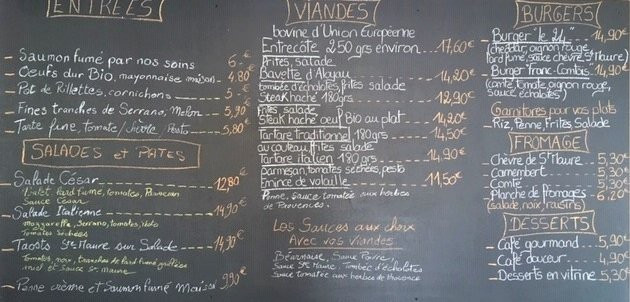 ENTRÉES
Saumon fumé par nos soins 6.-
Oeufs dur Bio, mayonnaise maison 4.80
Pot de Rillettes, cornichons 5.-
Fines tranches de Serrano, Melon 5,90
Tarte fine, tomate/chèvre, Pesto 5,80
SALADES et PÂTES
Salade César 12,80
lard fumé, tomates, Parmesan
Sauce César
Salade Italienne 14,90
mozzarella, Serrano, tomates,
Tomates séchées
Toasts Ste Maure sur Salade 14,90
Tomates, noix, tranches de lard fumé grillées
miel et sauce Ste Maure
Penne crème et Saumon fumé Maison 9,90
VIANDES
bovine d'Union Européenne
Entrecôte 250 grs environ 17,60€
frites, salade
Bavette d'Aloyau 14,20€
tombée d'échalotes, frites salade
Steak haché 180grs 12,90€
frites salade
Steak haché oeuf Bio au plat 14,20€
Tartare traditionnel 180grs 14,50€
au couteau, frites salade
Tartare italien 180 grs 14,90€
Parmesan, tomates séchées, pesto
Emincé de volaille 11,50€
Penne, sauce tomatée aux herbes
de Provences.
Les Sauces aux choix
Avec vos Viandes
Béarnaise, Sauce Poivre,
Sauce Ste Maure, Tombée d'échalotes
Sauce tomatée aux herbes de Provence
BURGERS
Burger "le 24" 14,90€
(cheddar, oignon rouge
lard fumé, sauce chèvre St Maure)
Burger Franc-Comtois 14,90€
(comté, tomate, oignon rouge,
sauce échalotes)
Garnitures pour vos plats
Riz, Penne, Frites Salade
FROMAGE
Chèvre de St Maure 5,30€
Camembert 5,30€
Comté 5,30€
Planche de fromages 6,20€
(salade, noix, raisins)
DESSERTS
Café gourmand 5,90€
Café douceur 4,90€
Desserts en vitrine 5,30€